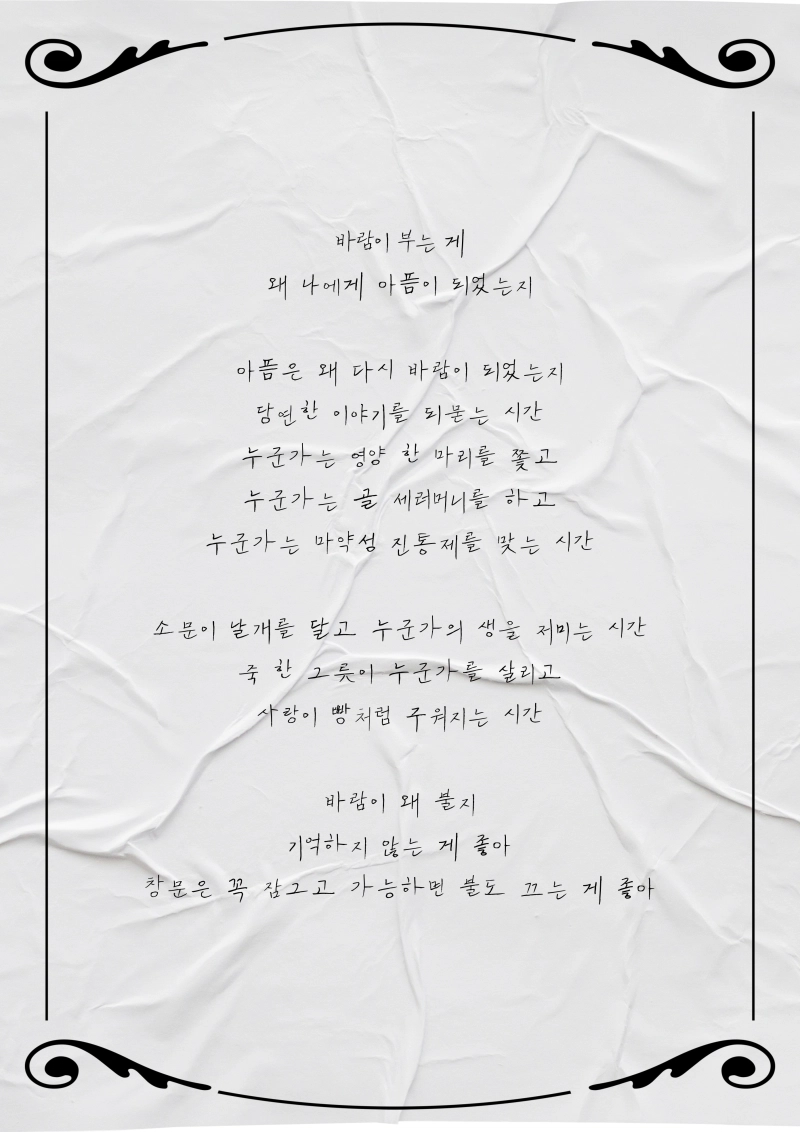 바람이 부는 게
왜 나에게 아픔이 되었는지
아픔은 왜 다시 바람이 되었는지
당연한 이야기를 되묻는 시간
누군가는 영양 한 마리를 쫓고
누군가는 골 세러머니를 하고
누군가는 마약성 진통제를 맞는 시간
소문이 날개를 달고 누군가의 생을 저미는 시간
죽 한 그릇이 누군가를 살리고
사랑이 빵처럼 구워지는 시간
바람이 왜 불지
기억하지 않는 게 좋아
창문은 꼭 잠그고 가능하면 불도 끄는 게 좋아